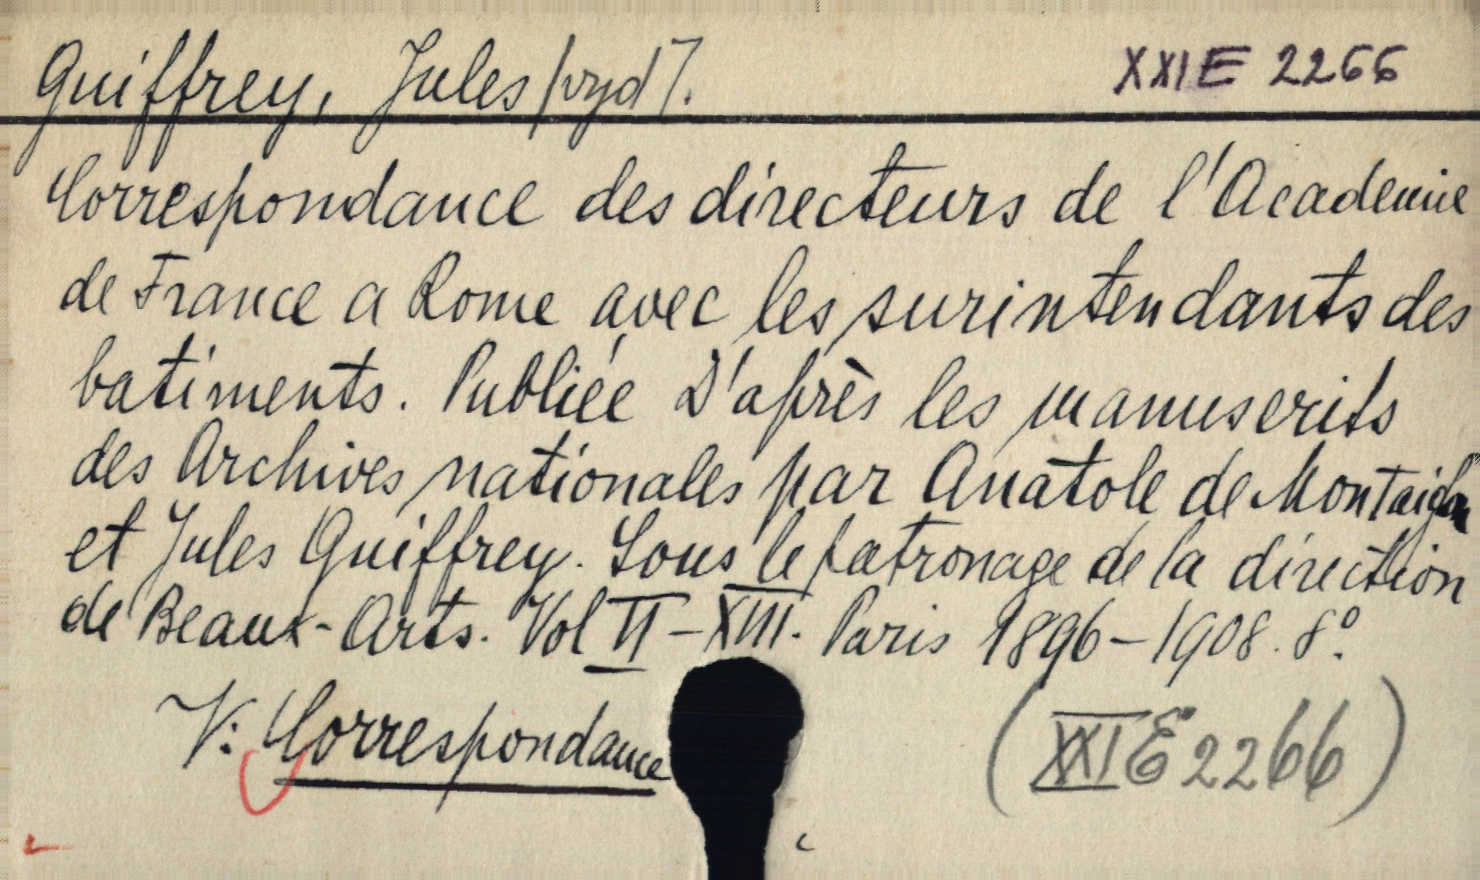 Guiffrey, Jules /vyd/.
XXI E 2266
Correspondance des directeurs de l'Academie
de France a Rome avec les surintendants des
batiments. Publiée D'après les manuscrits
des Archives nationales par Anatole de Montaiglon
et Jules Guiffrey. Sous le patronage de la direction
de Beaux-Arts. Vol II-XIII. Paris 1896-1908. 8°.
V: Correspondance
(XXI E 2266)